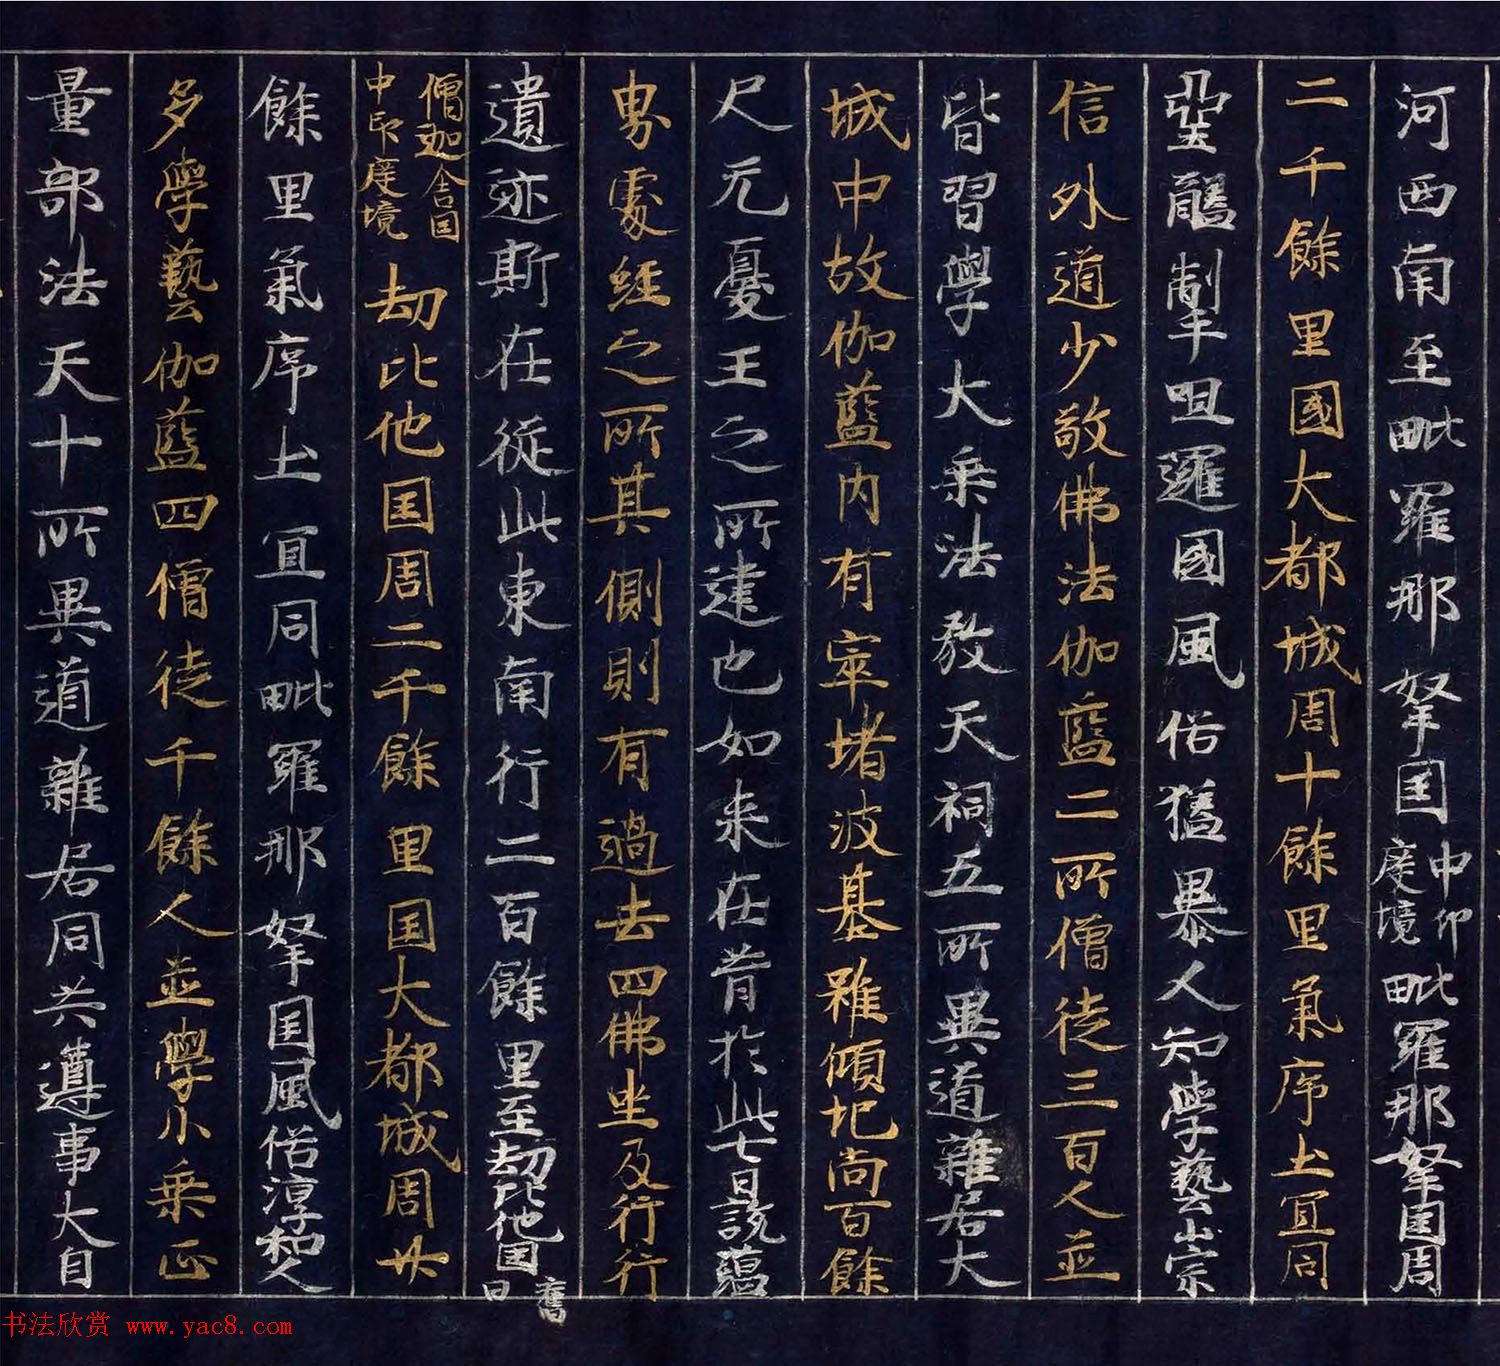 河西南至毗羅那拏国中印度境毗羅那拏国周
二千餘里國大都城周十餘里氣序土宜同
堊醯制呾邏國風俗猛暴人知學藝崇
信外道少敬佛法伽藍二所僧徒三百人並
皆習學大乘法教天祠五所異道雜居大
城中故伽藍内有窣堵波基雖傾圮尚百餘
尺无憂王之所建也如来在昔於此七日說蘊
界處經之所其側則有過去四佛坐及行行
遺迹斯在從此東南行二百餘里至劫比他国舊曰
僧迦舍国中印度境劫比他国周二千餘里国大都城周廿
餘里氣序土宜同毗羅那拏国風俗淳和人
多學藝伽藍四僧徒千餘人並學小乘正
量部法天十所異道雜居同共遵事大自
书法欣赏 www.yac8.com